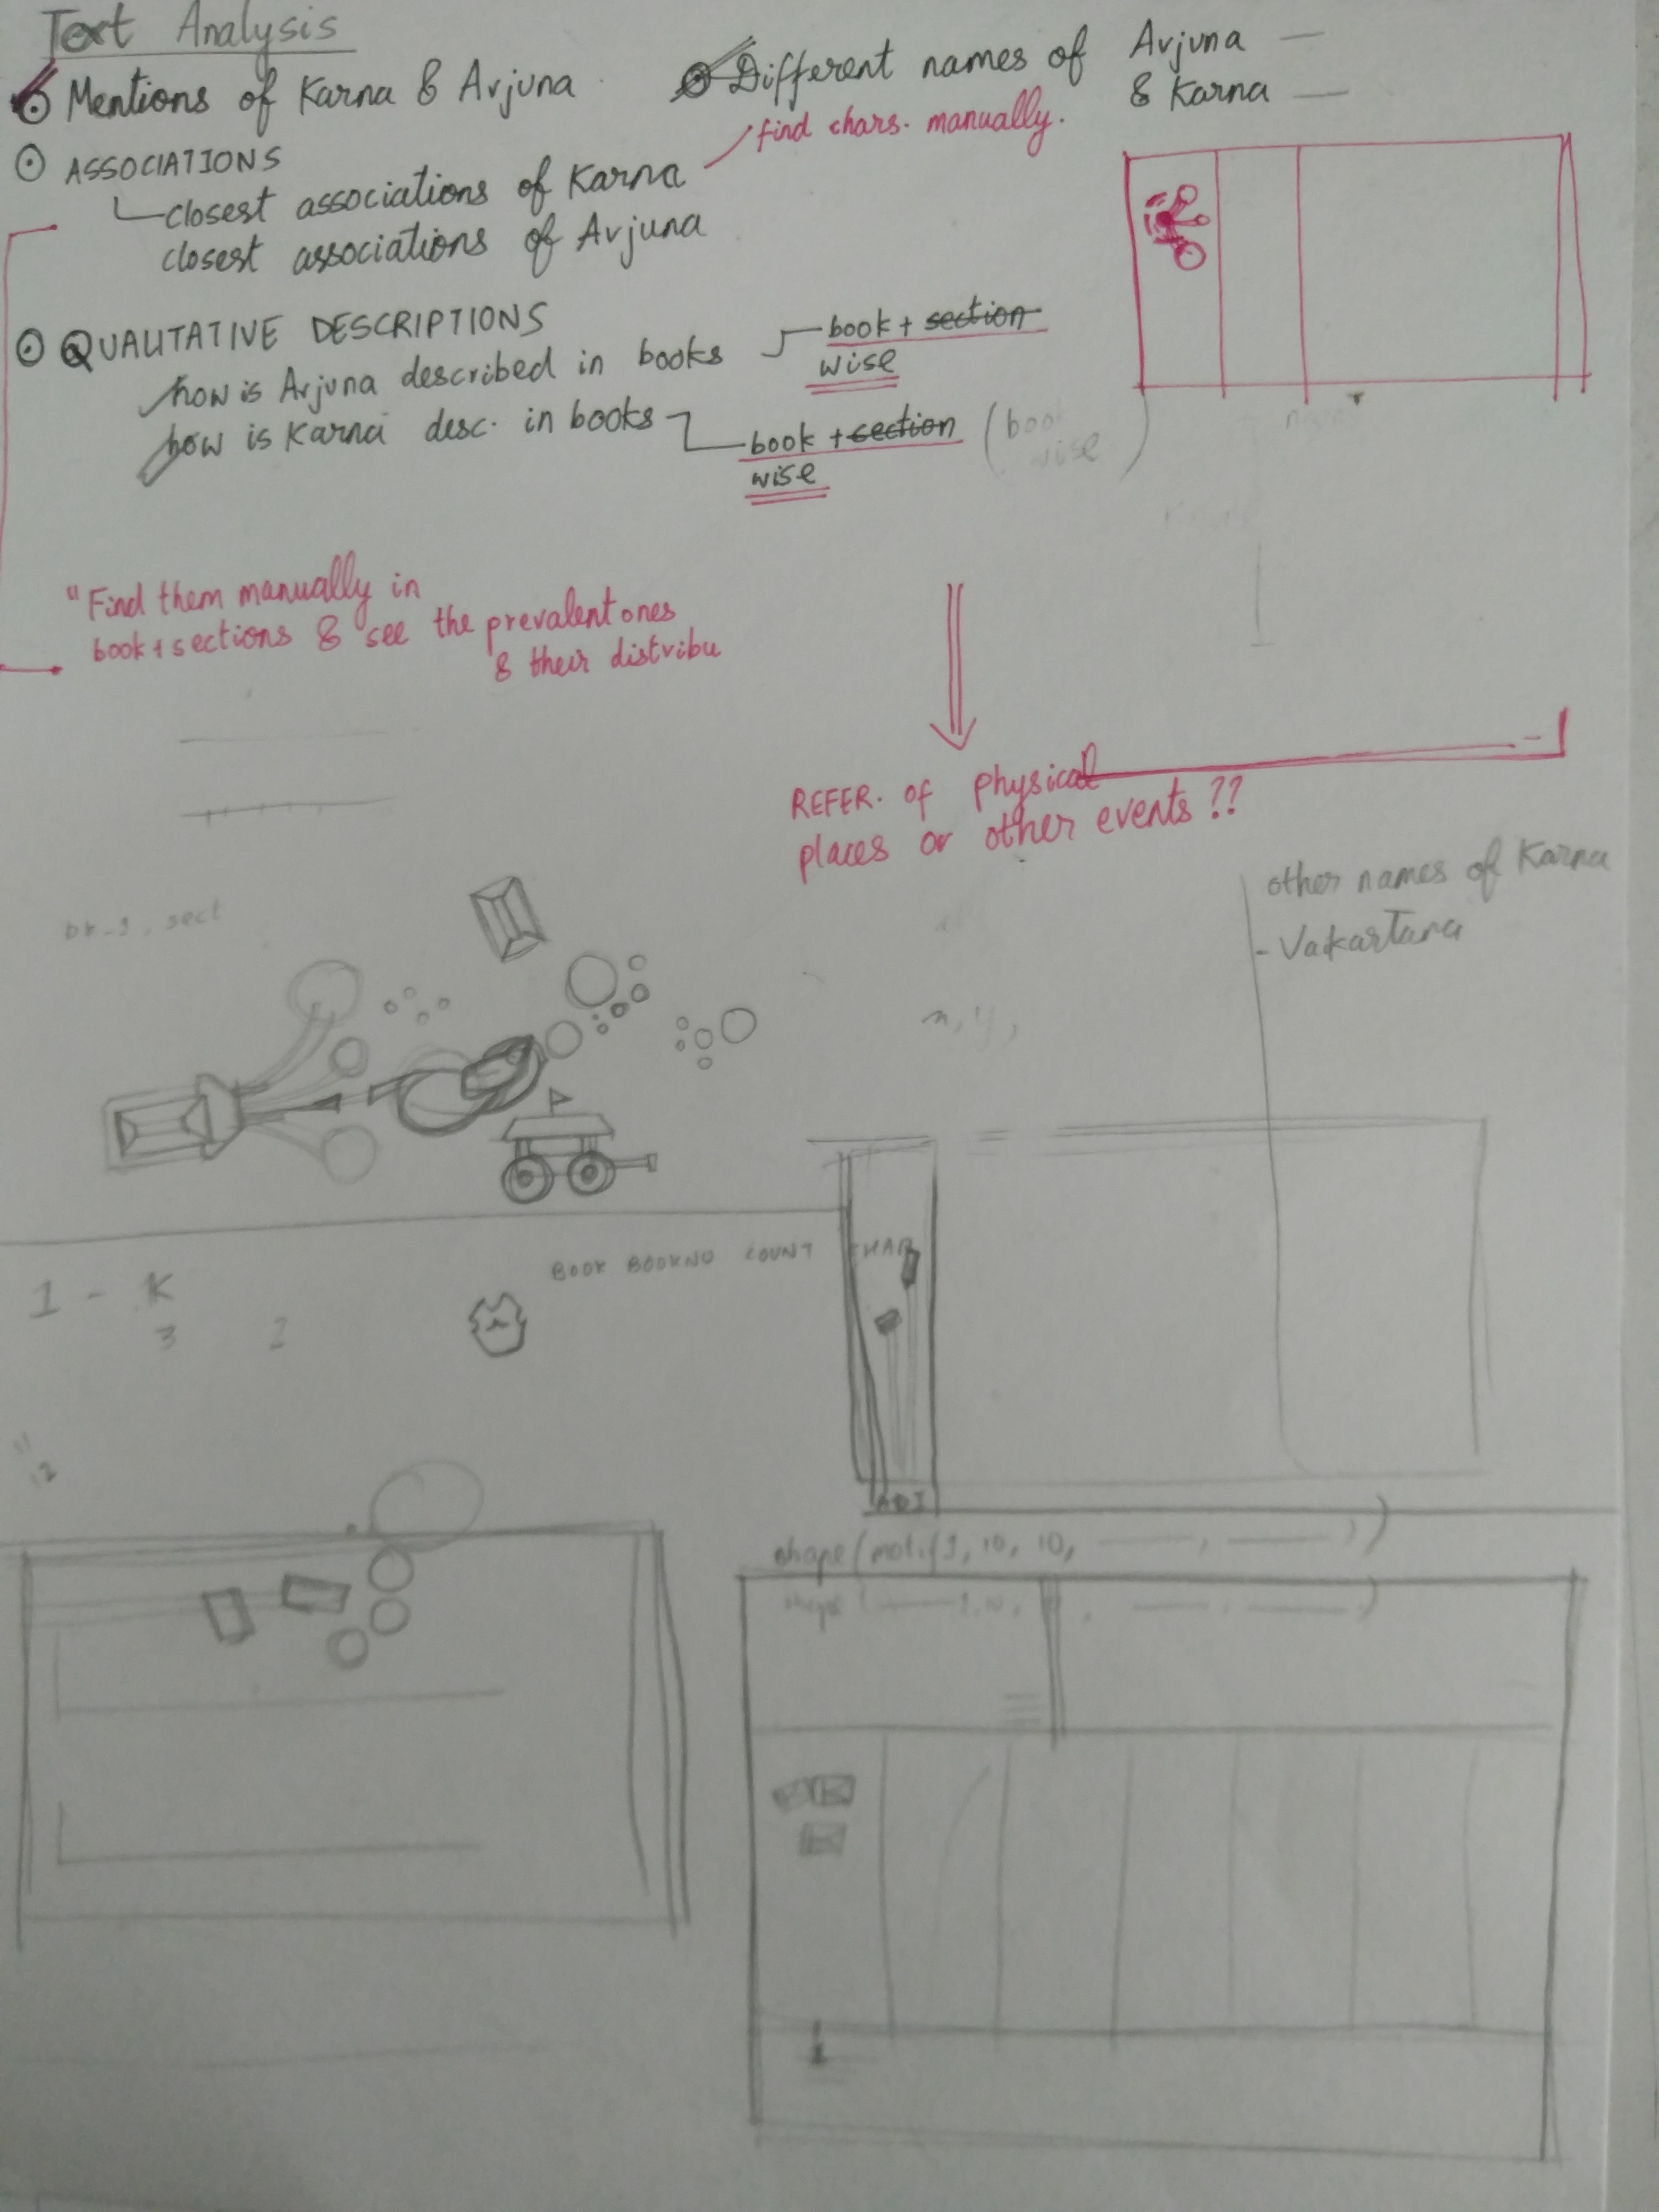 Text Analysis
Mentions of Karna & Arjuna
Different names of Arjuna —
& Karna —
find chars. manually.
ASSOCIATIONS
closest associations of Karna
closest associations of Arjuna
QUALITATIVE DESCRIPTIONS
how is Arjuna described in books
book + section
wise
how is Karna desc. in books
book + section
wise
(book
wise)
"Find them manually in
book + sections & see the prevalent ones
& their distribu
REFER. of physical
places or other events ??
other names of Karna
- Vakartana
bk_1, sect
x, y,
BOOK BOOKNO COUNT CHAR
1 - K
3 2
11
12
ADI
shape(motif1, 10, 10, —, —, )
1